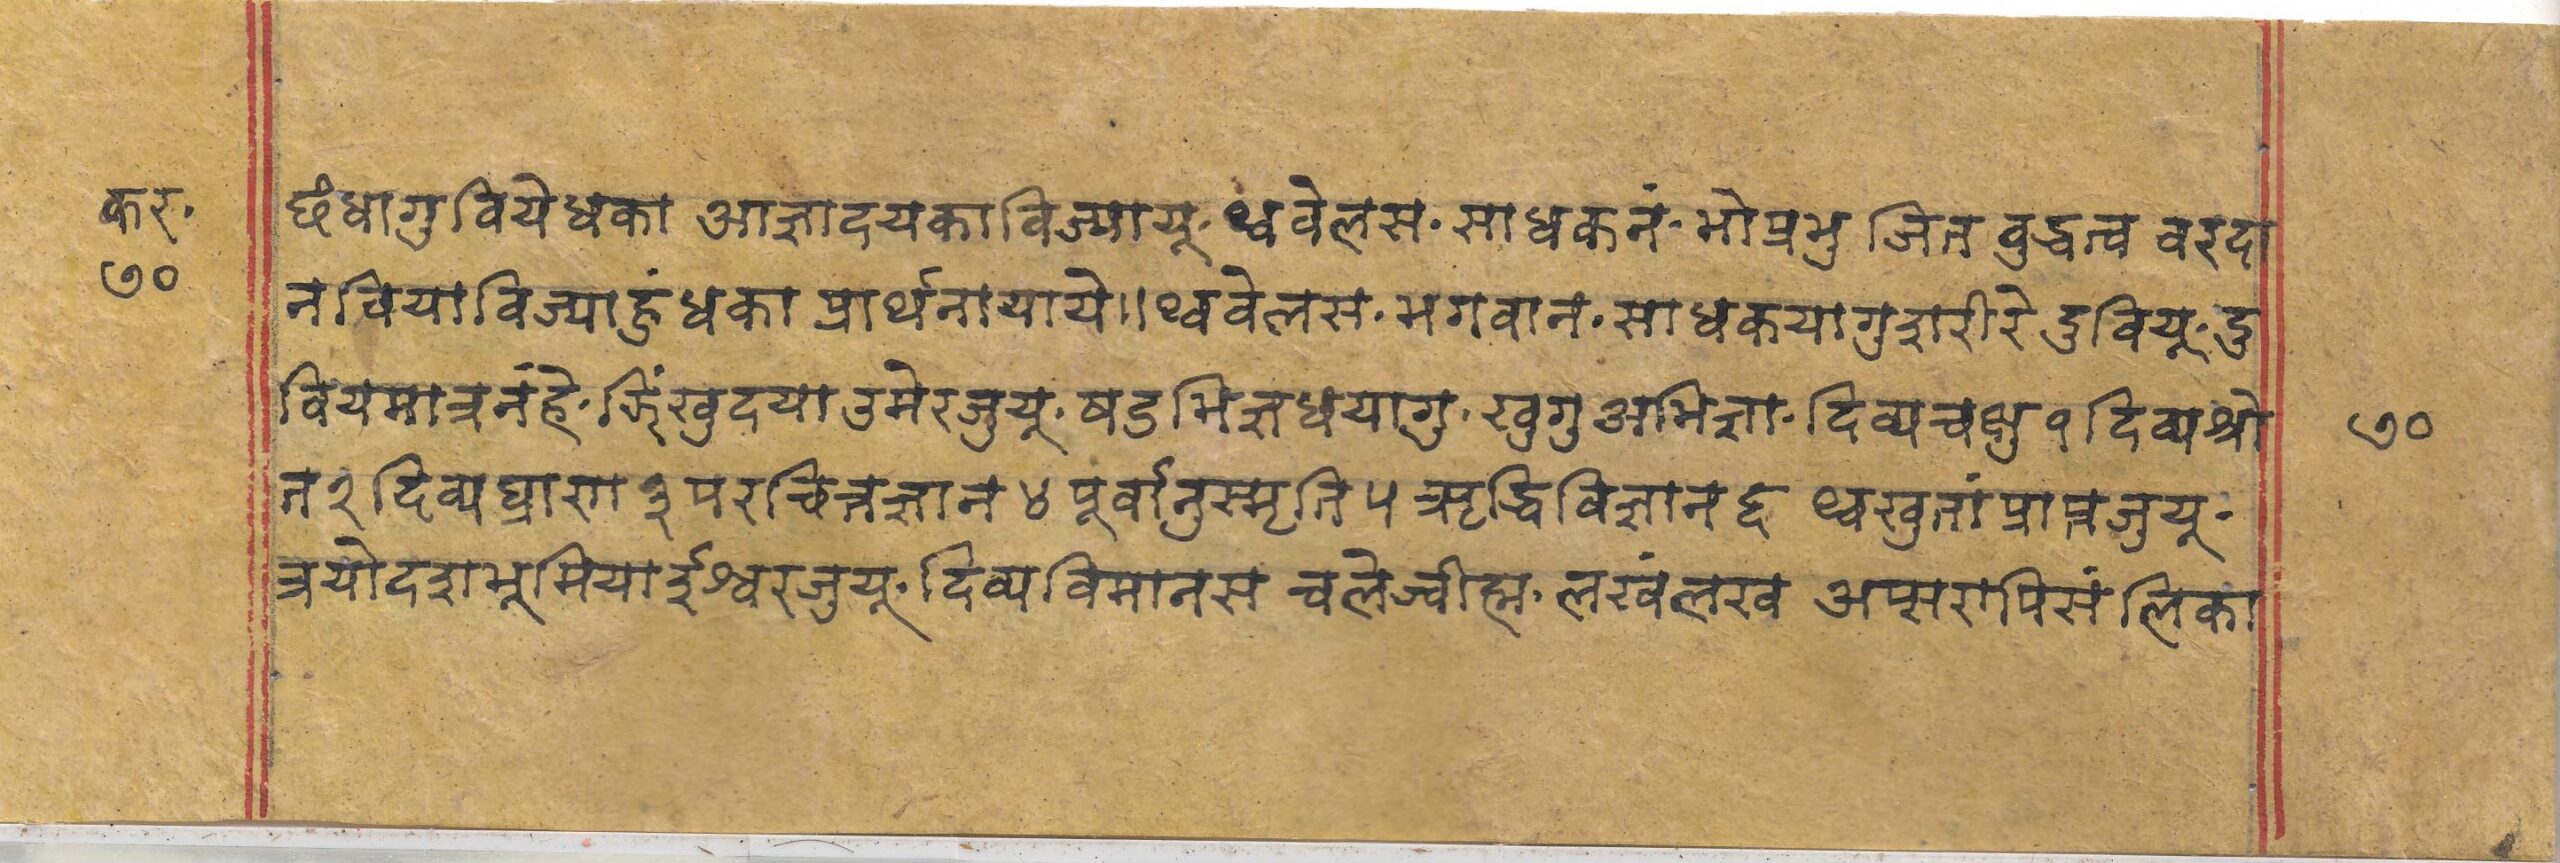 कर॰
७०
छंधागु वियेधका आज्ञादयकाविज्यायू॰ थ्ववेलस॰ साधकनं॰ भोप्रभु जित वुद्धत्व वरदा
नवियाविज्याहुंधका प्रार्थनायाये॥थ्ववेलस॰भगवान॰साधकयागुशरीरे दुवियू॰दु
वियमात्रनंहे॰ त्रिंखुदया उमेरजुयू॰ षडभिज्ञधयागु॰ खुगु अभिज्ञा॰दिव्यचक्षु१दिव्यश्रो
त२दिव्यघ्राण३परचित्तज्ञान४पूर्वानुस्मृति५ऋद्धिविज्ञान६ थ्वखुतांप्राप्तजुयू॰
त्रयोदशभूमियाईश्वरजुयू॰दिव्यविमानस च्वलेज्वीह्म॰लखंलख अप्सरापिसं लिका
७०